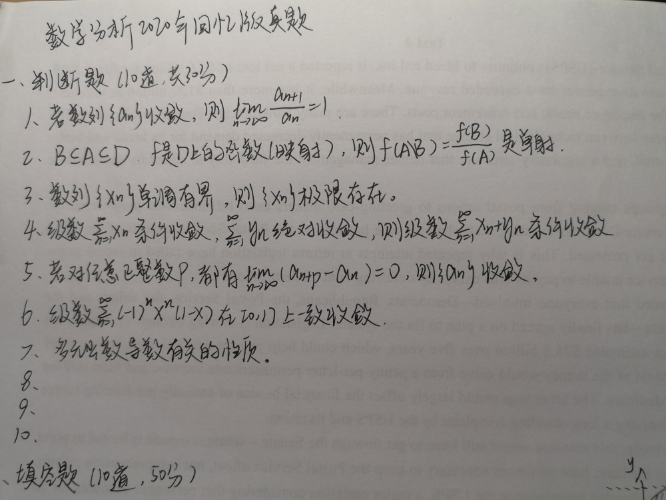 数学分析2020年回忆版真题
一、判断题(10道,共50分)
1、若数列{an}收敛,则 lim n→∞ an+1/an =1
2、B⊆A⊆D f是D上的函数(映射),则f(A\B)= f(B)/f(A) 是单射.
3、数列{xn}单调有界,则{xn}极限存在。
4、级数 ∞Σn=1 xn 条件收敛, ∞Σn=1 yn 绝对收敛,则级数 ∞Σn=1 xn+yn 条件收敛
5、若对任意正整数P,都有 lim n→∞ (an+p-an)=0,则{an}收敛。
6、级数 ∞Σn=1 (-1)^n x^n (1-x) 在[0,1]上一致收敛.
7、多元函数导数有关的性质。
8、
9、
10、
、填空题(10道,50分)
y